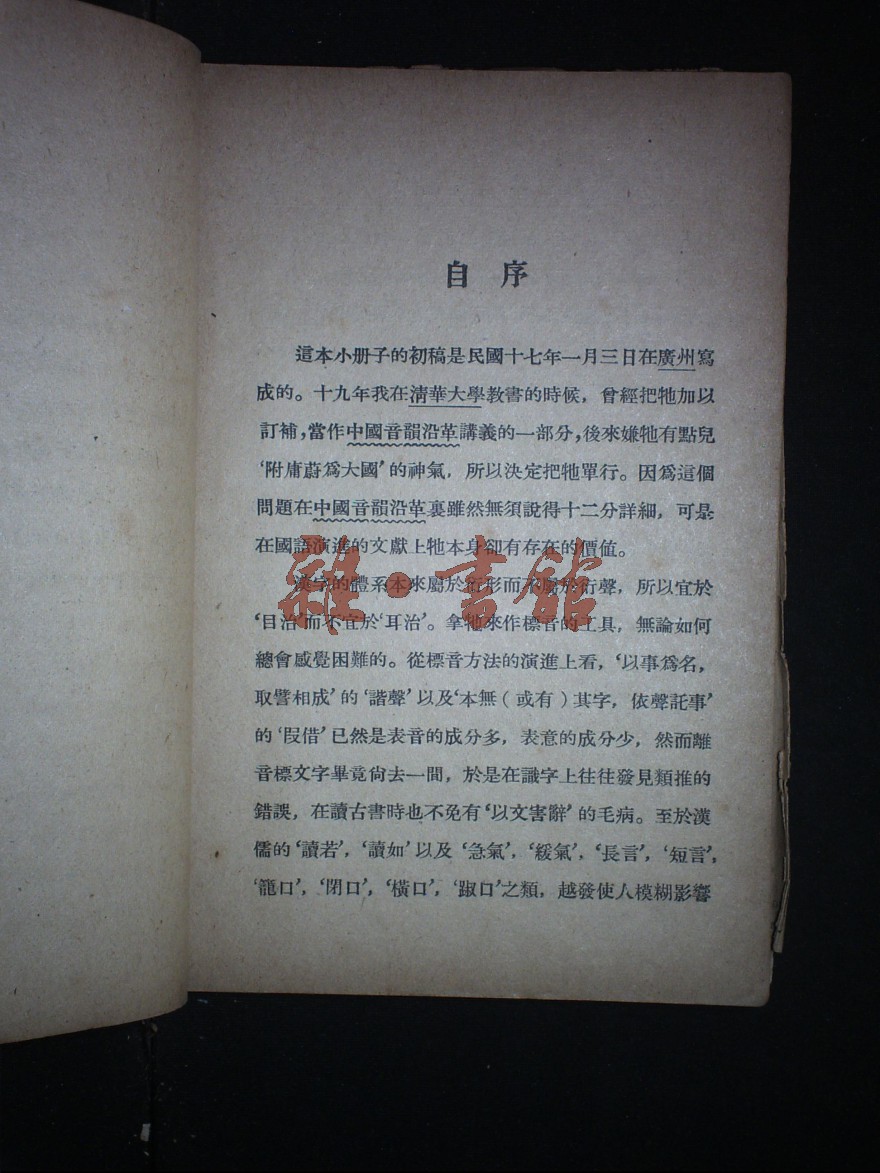 自序
這本小册子的初稿是民國十七年一月三日在廣州寫
成的。十九年我在清華大學教書的時候，曾經把牠加以
訂補，當作中國音韻沿革講義的一部分，後來嫌牠有點兒
‘附庸蔚爲大國’的神氣，所以決定把牠單行。因爲這個
問題在中國音韻沿革裏雖然無須說得十二分詳細，可是
在國語演進的文獻上牠本身卻有存在的價值。
漢字的體系本來屬於衍形而不屬於衍聲，所以宜於
‘目治’而不宜於‘耳治’。拿牠來作標音的工具，無論如何
總會感覺困難的。從標音方法的演進上看，‘以事爲名，
取譬相成’的‘諧聲’以及‘本無（或有）其字，依聲託事’
的‘叚借’已然是表音的成分多，表意的成分少，然而離
音標文字畢竟尙去一間，於是在識字上往往發見類推的
錯誤，在讀古書時也不免有‘以文害辭’的毛病。至於漢
儒的‘讀若’，‘讀如’以及‘急氣’，‘緩氣’，‘長言’，‘短言’，
‘籠口’，‘閉口’，‘橫口’，‘踧口’之類，越發使人模糊影響
雜·書館